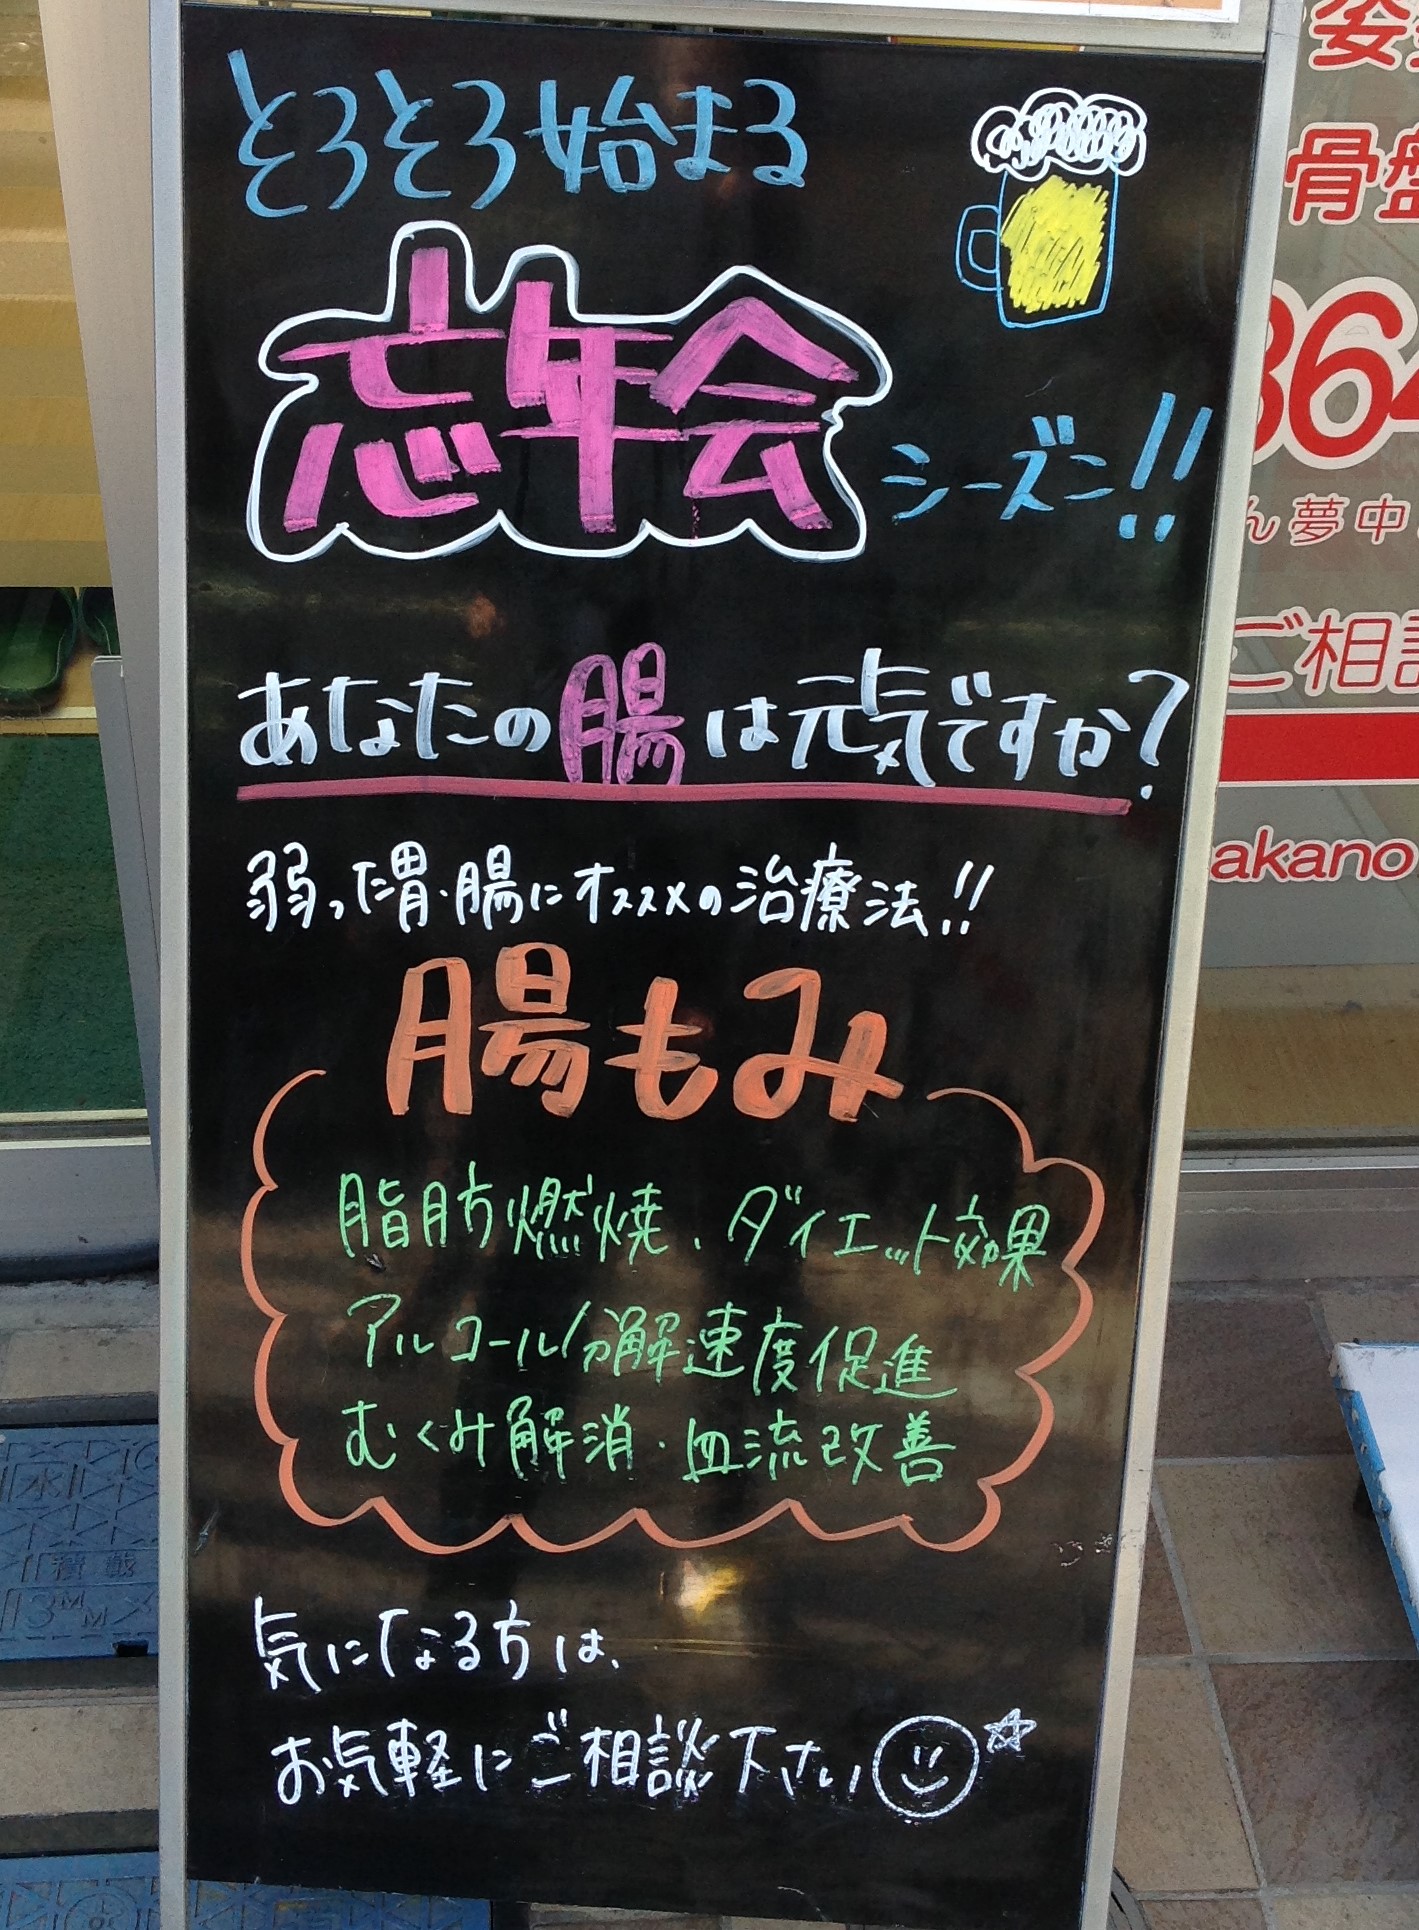 そろそろ始まる
忘年会シーズン!!
あなたの腸は元気ですか?
弱った胃・腸にオススメの治療法!!
腸もみ
脂肪燃焼、ダイエット効果
アルコール分解速度促進
むくみ解消・血流改善
気になる方は、
お気軽にご相談下さい
姿
骨盤
364
ん夢中
ご相談
akano
水
積載